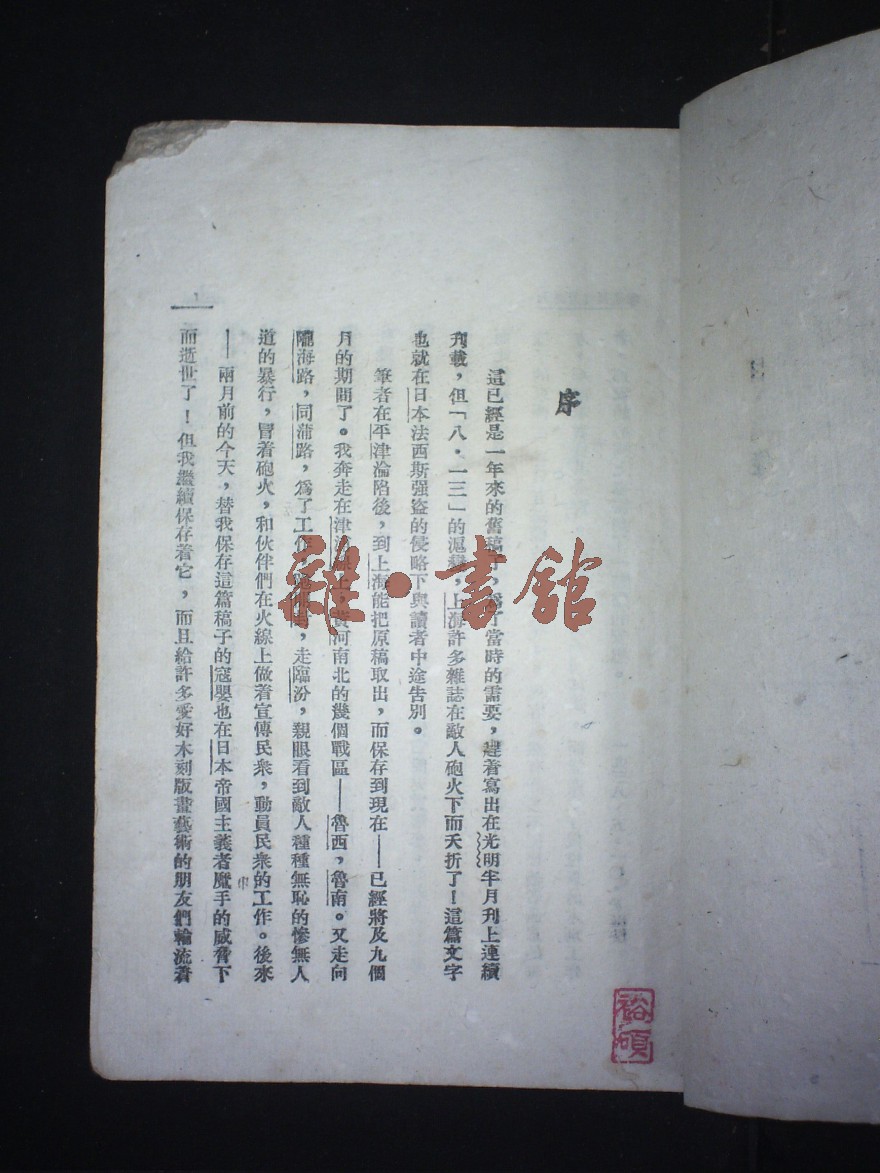 序
這已經是一年來的舊稿了，爲了當時的需要，趕着寫出在光明半月刊上連續
刋載，但「八・一三」的滬戰，上海許多雜誌在敵人砲火下而夭折了！這篇文字
也就在日本法西斯强盜的侵略下與讀者中途告別。
筆者在平津淪陷後，到上海能把原稿取出，而保存到現在——已經將及九個
月的期間了。我奔走在津浦線上，黃河南北的幾個戰區——魯西，魯南。又走向
隴海路，同蒲路，爲了工作，走臨汾，親眼看到敵人種種無恥的慘無人
道的暴行，冒着砲火，和伙伴們在火線上做着宣傳民衆，動員民衆的工作。後來
——兩月前的今天，替我保存這篇稿子的寇嬰也在日本帝國主義者魔手的威脅下
而逝世了！但我繼續保存着它，而且給許多愛好木刻版畫藝術的朋友們輪流着
1
雜・書館
裕碩